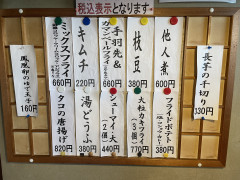 税込表示となります。
他人煮
600円
枝豆
380円
手羽先&
660円
キムチ
220円
ミックスフライ
660円
長芋の千切り
330円
フライドポテト
380円
大粒カキフライ
(3個)
770円
シューマイ大
(2個)
440円
湯どうふ
380円
タコの唐揚げ
820円
160円